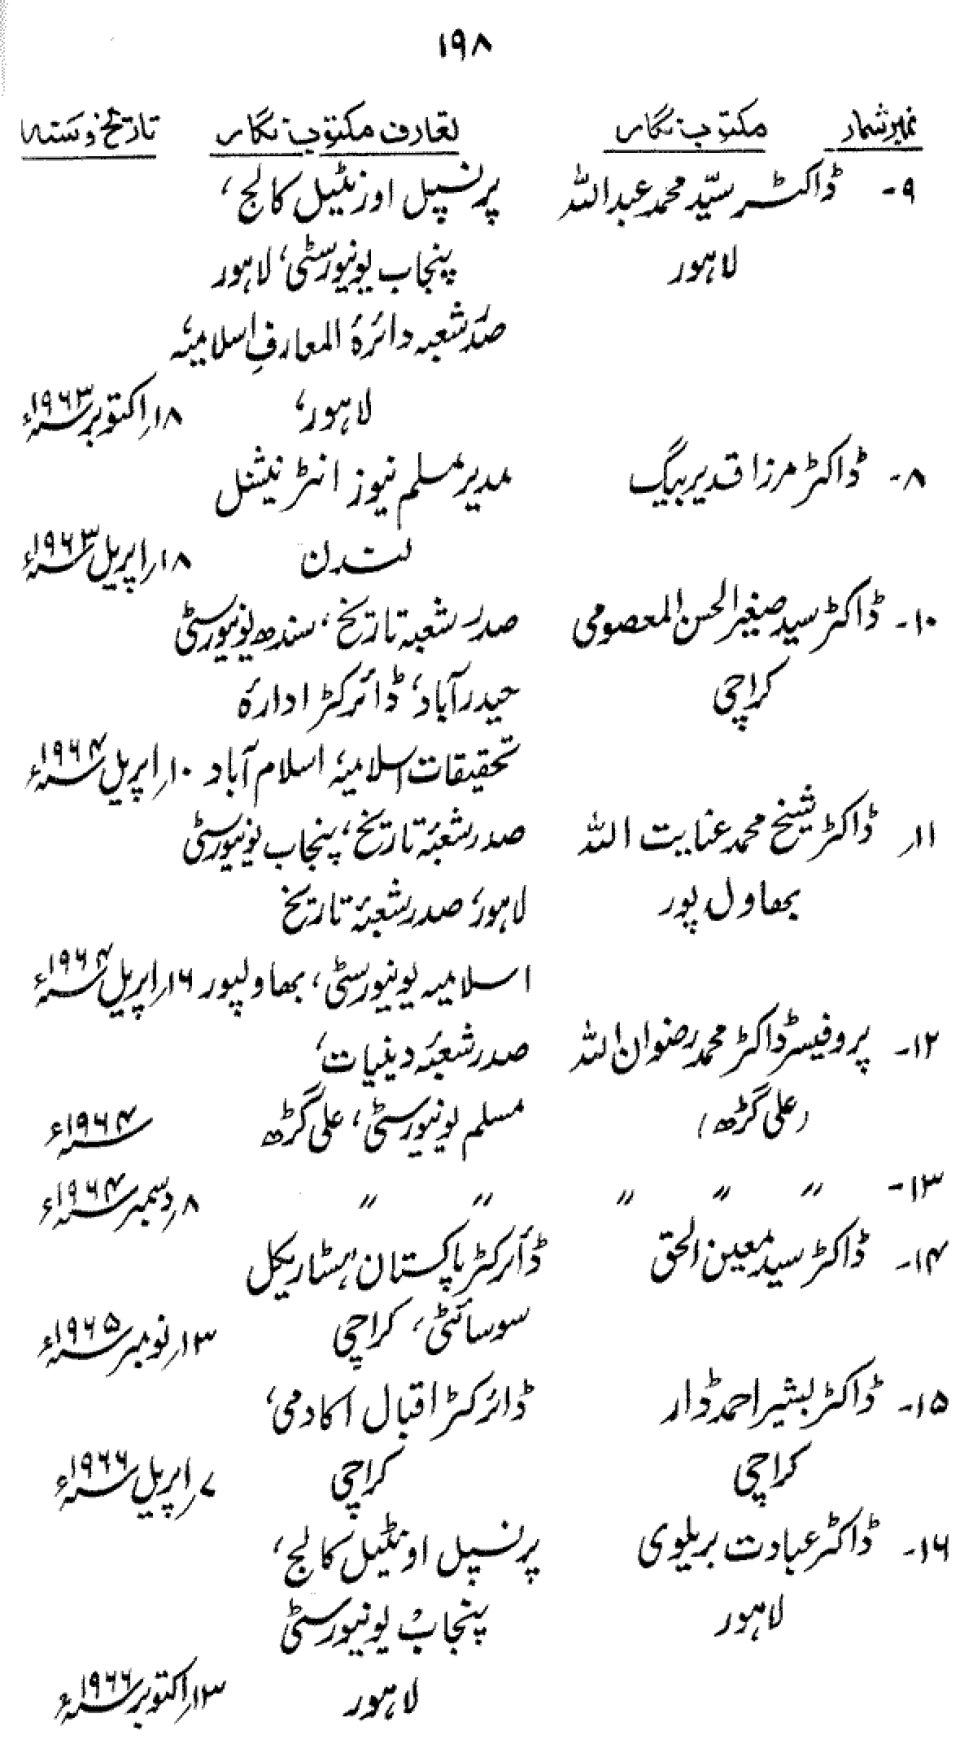 ۱۹۸
نمبر شمار مکتوب نگار تعارف مکتوب نگار تاریخ و سنہ
۹- ڈاکٹر سیّد محمد عبداللہ پرنسپل اورنٹیل کالج،
لاہور پنجاب یونیورسٹی، لاہور
صدر شعبہ دائرۂ المعارفِ اسلامیہ
لاہور، ۱۸؍اکتوبر ۱۹۶۳ء
۸- ڈاکٹر مرزا قدیر بیگ مدیر مسلم نیوز انٹرنیشنل
لندن ۱۸؍اپریل ۱۹۶۳ء
۱۰- ڈاکٹر سید صغیر الحسن المعصومی صدر شعبۂ تاریخ، سندھ یونیورسٹی
کراچی حیدرآباد، ڈائرکٹر ادارۂ
تحقیقات اسلامیہ اسلام آباد ۱۰؍اپریل ۱۹۶۴ء
۱۱؍ ڈاکٹر شیخ محمد عنایت اللہ صدر شعبۂ تاریخ، پنجاب یونیورسٹی
بھاول پور لاہور، صدر شعبۂ تاریخ
اسلامیہ یونیورسٹی، بھاولپور ۱۶؍اپریل ۱۹۶۴ء
۱۲- پروفیسر ڈاکٹر محمد رضوان اللہ صدر شعبۂ دینیات،
(علی گڑھ) مسلم یونیورسٹی، علی گڑھ ۱۹۶۴ء
۱۳- " " " " " ۸؍دسمبر ۱۹۶۴ء
۱۴- ڈاکٹر سید معین الحق ڈائرکٹر پاکستان ہسٹاریکل
سوسائٹی، کراچی ۱۳؍نومبر ۱۹۶۵ء
۱۵- ڈاکٹر بشیر احمد ڈار ڈائرکٹر اقبال اکادمی،
کراچی کراچی ۷؍اپریل ۱۹۶۶ء
۱۶- ڈاکٹر عبادت بریلوی پرنسپل اونٹیل کالج،
لاہور پنجاب یونیورسٹی
لاہور ۱۳؍اکتوبر ۱۹۶۶ء